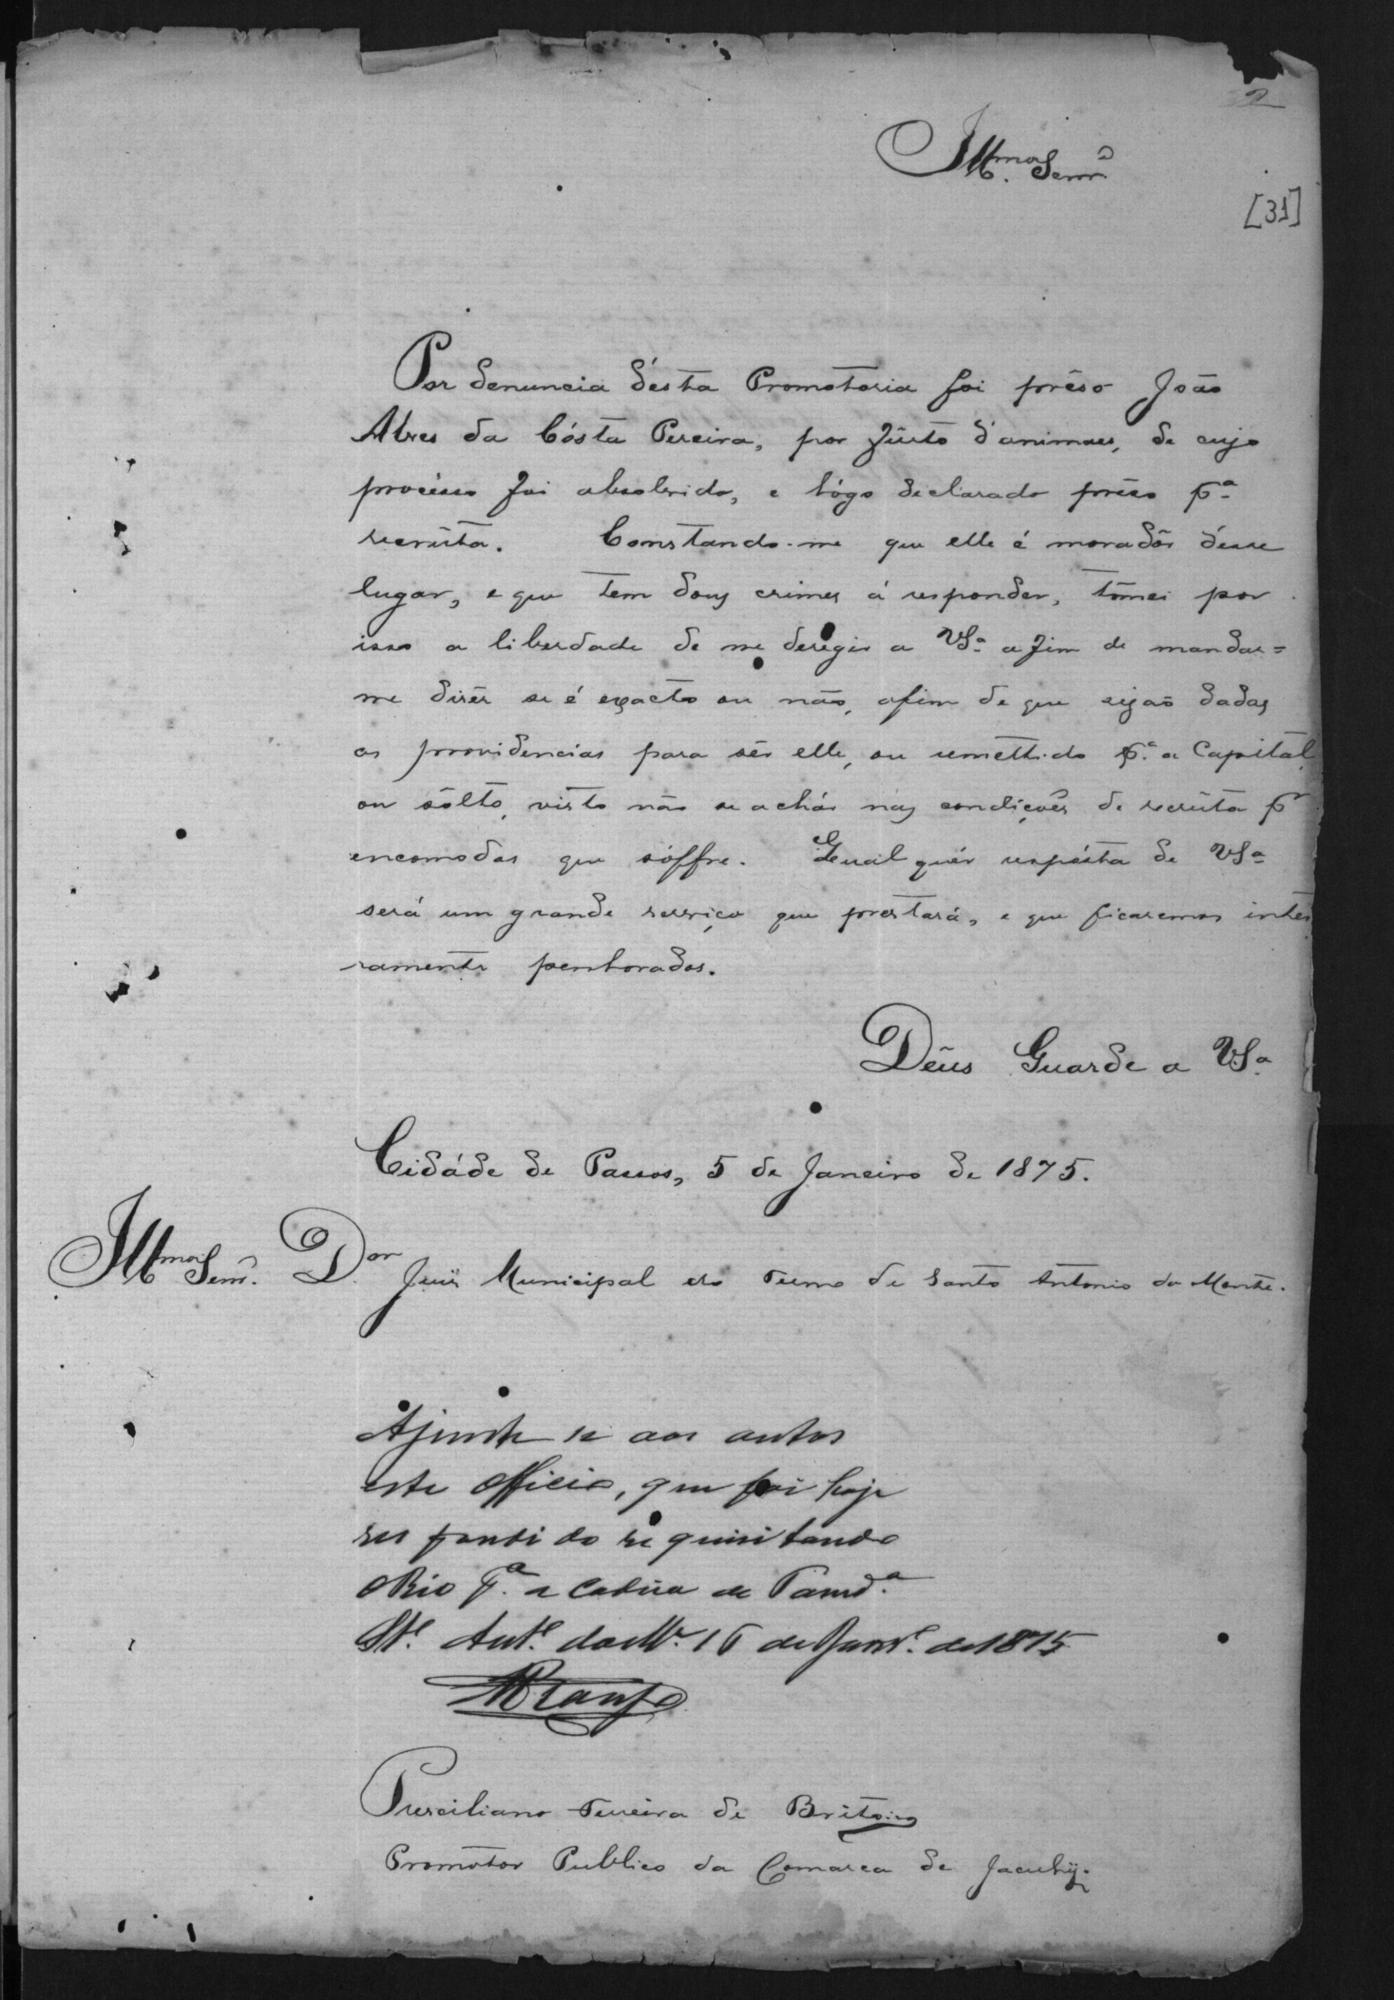 2
Illmo Senr
[31]
Por denuncia désta Promotoria foi prêso João
Alves da Cósta Pereira, por fûrto d'animaes, de cujo
procésso foi absolvido, e lógo declarado prêso pª
recrûta. Constando-me que elle é moradôr désse
lugar, e que tem dous crimes á responder, tômei por
isso a liberdade de me deregir a VSª afim de mandar=
me dizêr se é exacto ou não, afim de que sejão dadas
as providencias para sêr elle, ou remettido pª a Capital,
ou sôlto, visto não se achár nas condições de recrûta pr
encomodos que sóffre. Qualquér respósta de VSª
será um grande serviço que prestará, e que ficaremos intei
ramente penhorados.
Dêus Guarde a VSª
Cidáde de Passos, 5 de Janeiro de 1875.
Illmo Senr. Dor Juiz Municipal do Termo de Santo Antonio do Monte.
Ajunte se aos autos
este officio, que foi hoje
respondido requisitando
o Réo pª a Cadeia de Tamdª
Sto Anto do Me 16 de Janro de 1875
Presciliano Ferreira de Britto
Promotor Publico da Comarca de Jacuhy.